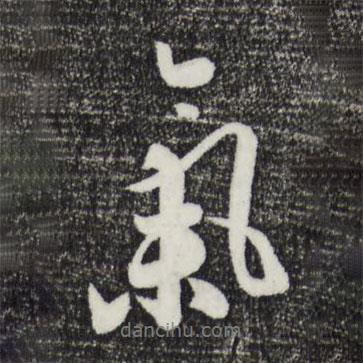 氣
dancihu.com